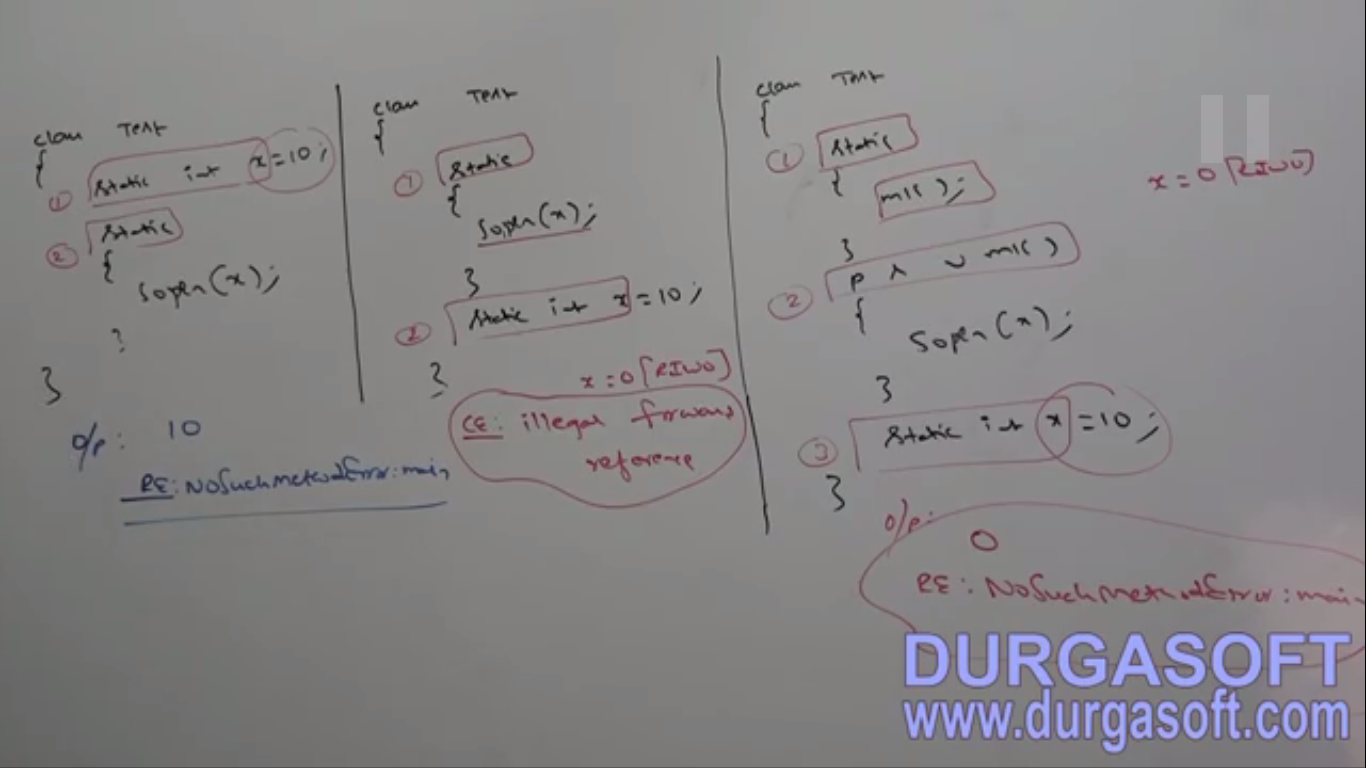 class Test
{
① static int x=10;
② static
{
Sopln(x);
}
}
o/p: 10
RE: NoSuchMethodError: main
class Test
{
① static
{
Sopln(x);
}
② static int x=10;
}
x=0[RIWO]
CE: illegal forward
reference
class Test
{
① static
{
m1();
}
② p s v m1()
{
Sopln(x);
}
③ static int x=10;
}
x=0[RIWO]
o/p:
0
RE: NoSuchMethodError: main
DURGASOFT
www.durgasoft.com